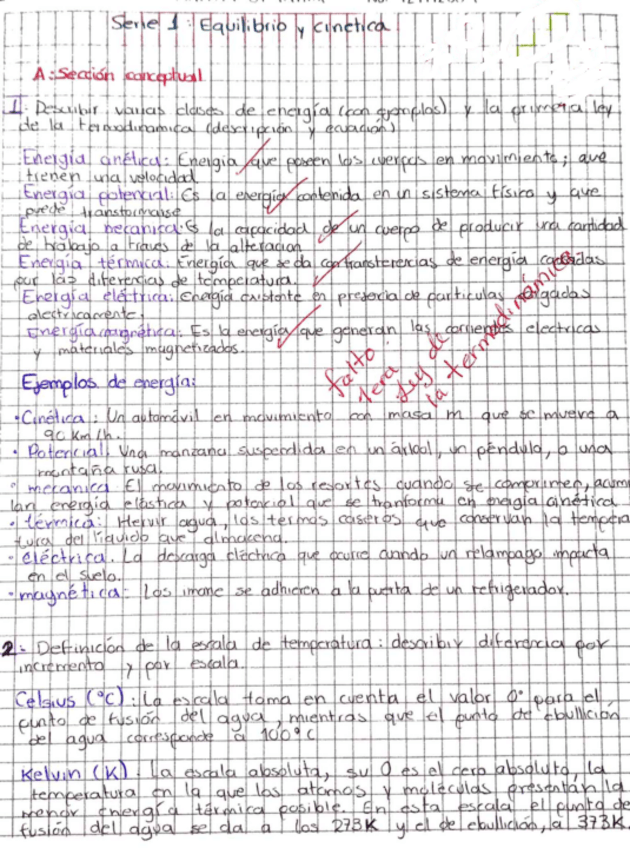 Serie 1: Equilibrio y cinética
A: Sección conceptual
1. Describir varias clases de energía (con ejemplos) y la primera ley
de la termodinamica (descripción y ecuación)
Energía cinética: Energía que poseen los cuerpos en movimiento; que
tienen una velocidad
Energía potencial: Es la energía contenida en un sistema físico y que
puede transformarse
Energía mecanica: Es la capacidad de un cuerpo de producir una cantidad
de trabajo a traves de la alteracion
Energía térmica: Energía que se da con transferencias de energía
por las diferencias de temperatura.
Energía eléctrica: Energía existente en presencia de particulas cargadas
electricamente.
Energía magnética: Es la energía que generan las corrientes electricas
y materiales magnetizados.
falto
1era
Ley de
la termodinámica
Ejemplos de energía:
· Cinética: Un automóvil en movimiento con masa m que se mueve a
90 km/h.
· Potencial: Una manzana suspendida en un árbol, un péndulo, o una
montaña rusa.
· mecanica El movimiento de los resortes cuando se comprimen, acumu
lan energía elástica y potencial que se tranforma en energía cinética
· térmica: Hervir agua, los termos caseros que conservan la tempera
tura del líquido que almacena.
· eléctrica. La descarga eléctrica que ocurre cuando un relampago impacta
en el suelo.
· magnética: Los imane se adhieren a la puerta de un refrigerador.
2: Definición de la escala de temperatura: describir diferencia por
incremento y por escala.
Celsius (°C): La escala toma en cuenta el valor 0° para el
punto de fusión del agua, mientras que el punto de ebullición
del agua corresponde a 100°C
Kelvin (K): La escala absoluta, su 0 es el cero absoluto, la
temperatura en la que los atomos y moléculas presentan la
menor energía térmica posible. En esta escala el punto de
fusión del agua se da a los 273K y el de ebullición, a 373K.